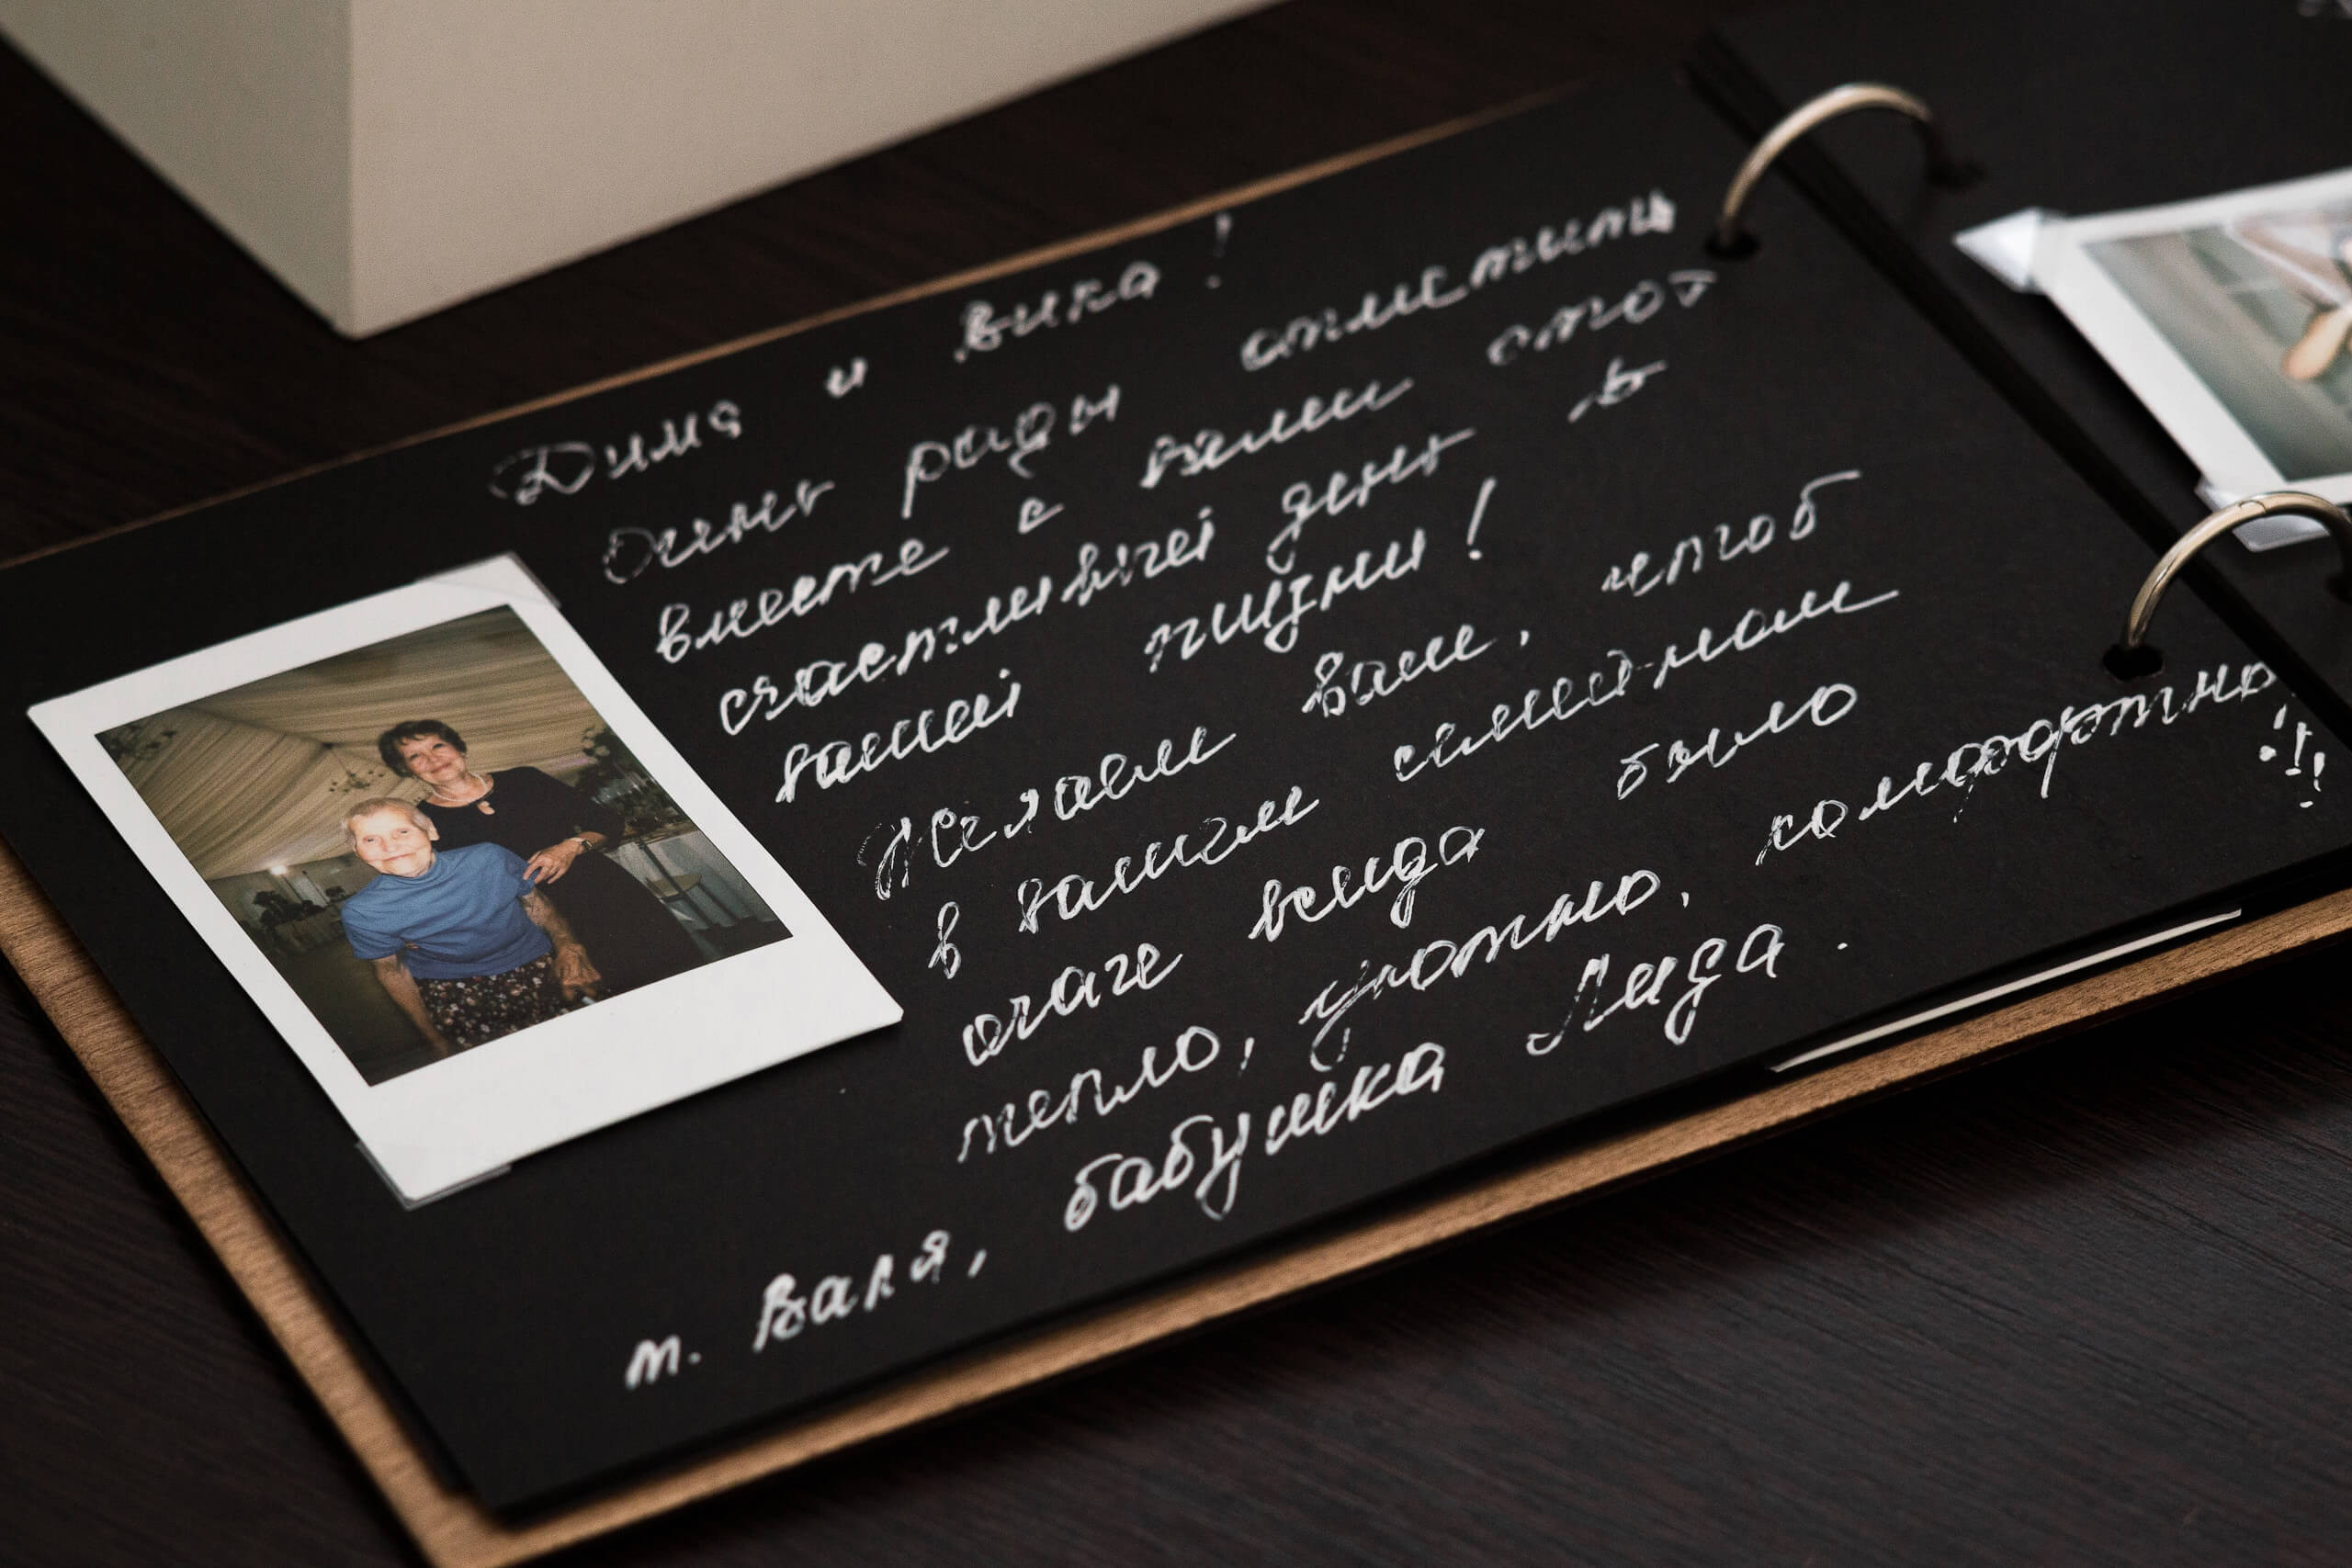 Дима и Вика!
Очень рады отметить
вместе с вами этот
счастливый день в
вашей жизни!
Желаем вам, чтоб
в вашем семейном
очаге всегда было
тепло, уютно, комфортно!!!
т. Валя, бабушка Лида.